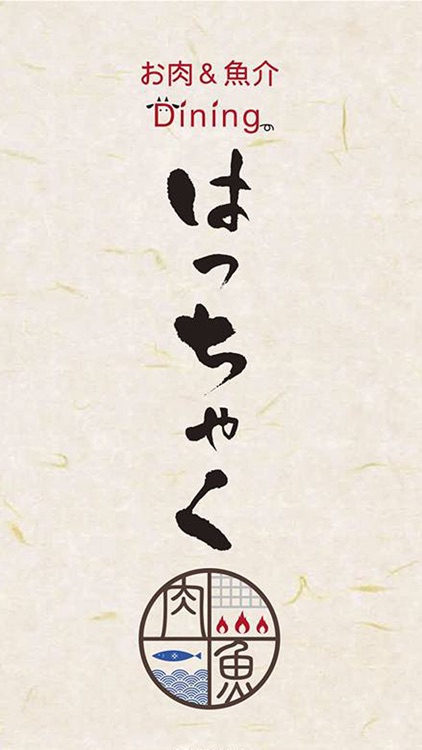 お肉＆魚介
Dining
はっちゃく
肉
魚